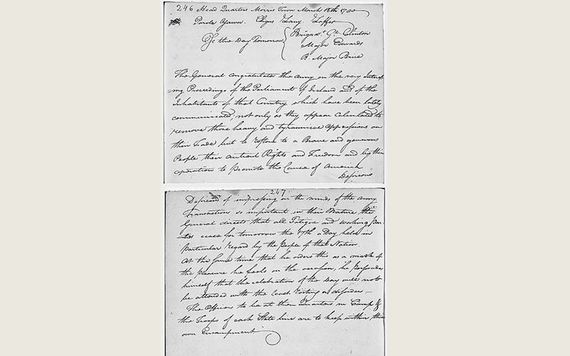 246 Head Quarters Morris Town March 16th 1780
Parole
For the Day Tomorrow
Brigadr Gl Clinton
Major Edwards
B. Major Brice
The General congratulates the Army on the very
ing Proceedings of the Parliament of Ireland and of the
Inhabitants of that Country which have been lately
communicated, not only as they appear Calculated to
remove those heavy and tyrannical oppressions on
their Trade but to restore to a Brave and generous
People their antient Rights and Freedom and by their
operation to Promote the Cause of America
Desirous
247
Desirous of impressing on the minds of the Army
Transactions so important in their Nature the
General directs that all Fatigue and working Par-
ties cease for tomorrow the 17th a Day held in
Particular regard by the People of that Nation
At the same time that he orders this as a mark of
the pleasure he feels on the occasion, he persuades
himself that the celebration of the Day will not
be attended with the least Rioting or disorder
The Officers to be at their Quarters in Camp &
the Troops of each State line are to keep within their
own Encampment